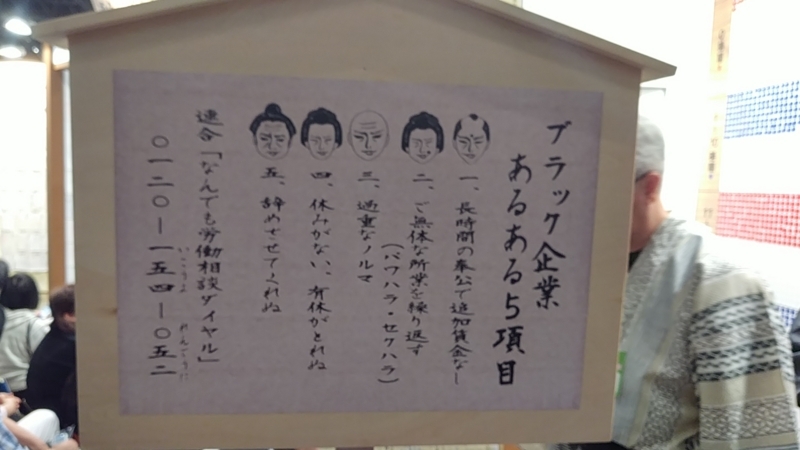 ブラック企業
あるある5項目
一、長時間の奉公で追加賃金なし
二、ご無体な所業を繰り返す
（パワハラ・セクハラ）
三、過重なノルマ
四、休みがない、有休がとれぬ
五、辞めさせてくれぬ
連合「なんでも労働相談ダイヤル」
〇一二〇ー一五四ー〇五二
いこうよ れんごうに